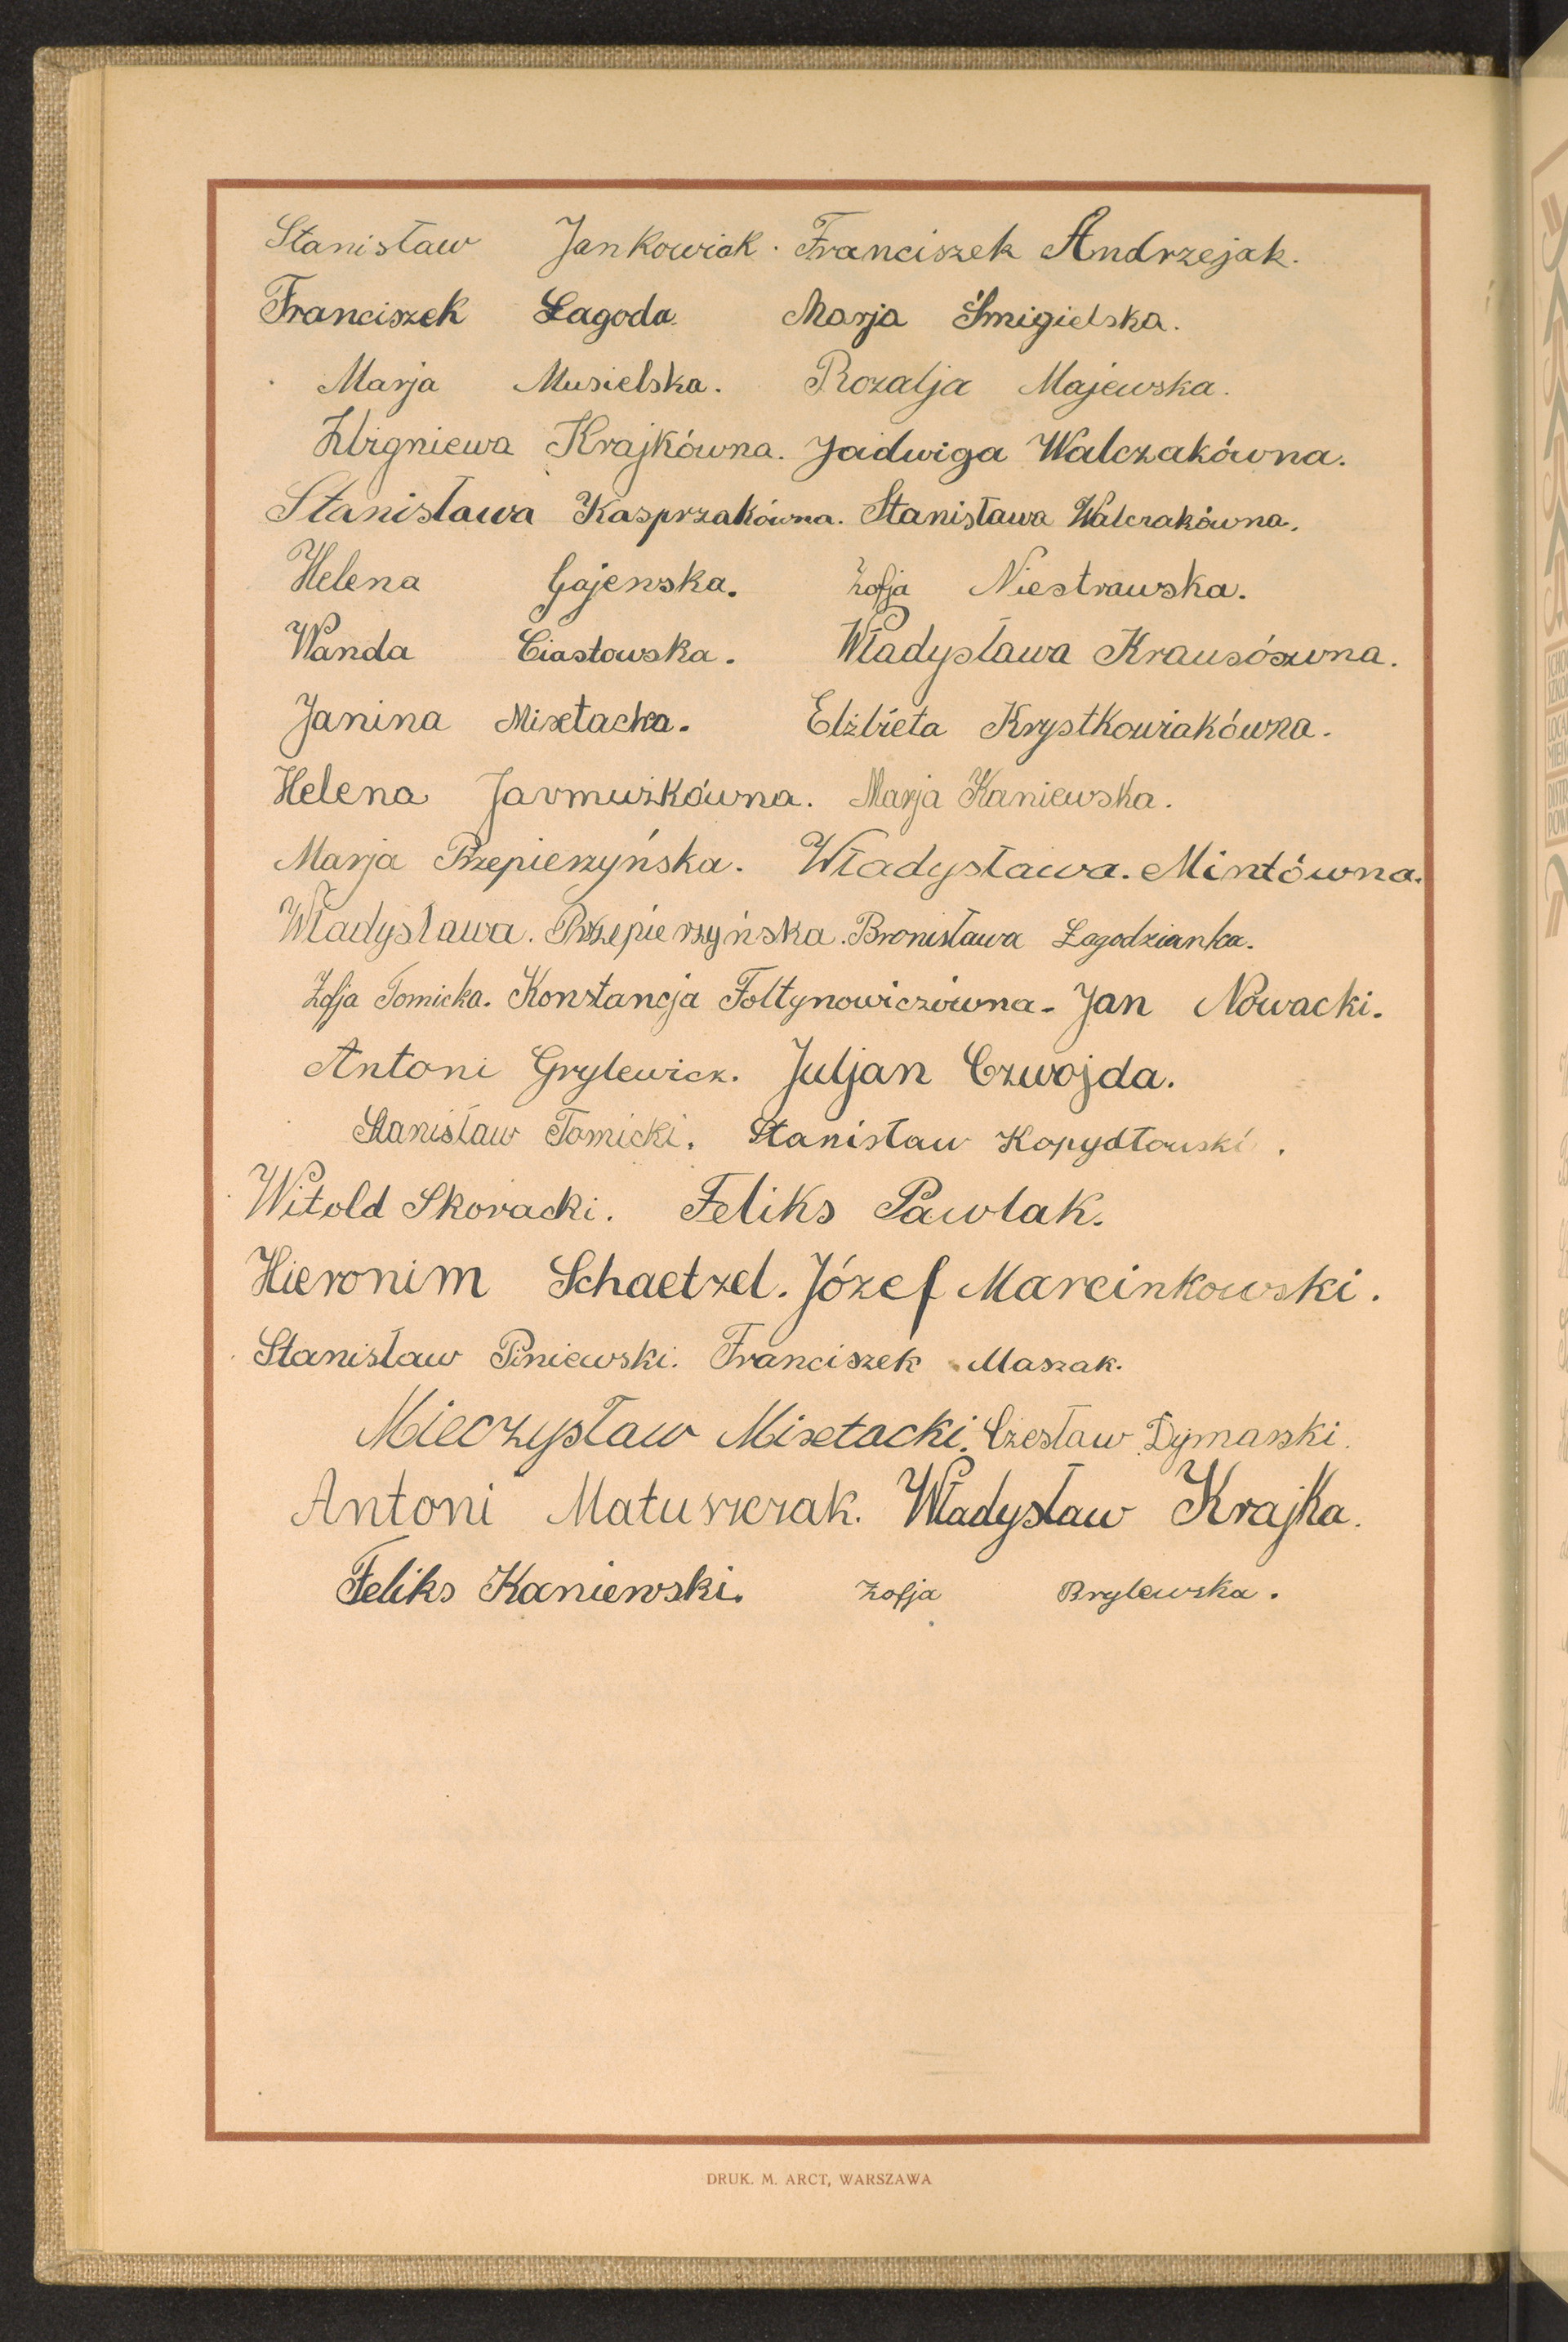 Stanisław Jankowiak. Franciszek Andrzejak.
Franciszek Łagoda. Marja Śmigielska.
Marja Musielska. Rozalja Majewska.
Zbigniewa Krajkówna. Jadwiga Walczakówna.
Stanisława Kasprzakówna. Stanisława Walczakówna.
Helena Gajewska. Zofja Niestrawska.
Wanda Ciastowska. Władysława Krausówna.
Janina Mixtacka. Elżbieta Krystkowiakówna.
Helena Jarmużkówna. Marja Kaniewska.
Marja Przepierzyńska. Władysława. Mintówna.
Władysława. Przepierzyńska. Bronisława Łagodzianka.
Zofja Tomicka. Konstancja Fołtynowiczówna. Jan Nowacki.
Antoni Grylewicz. Juljan Czwojda.
Stanisław Tomicki. Stanisław Kopydłowski.
Witold Skoracki. Feliks Pawlak.
Hieronim Schaetzel. Józef Marcinkowski.
Stanisław Piniewski. Franciszek Maszak.
Mieczysław Mixtacki. Czesław Dymarski.
Antoni Matuszczak. Władysław Krajka.
Feliks Kaniewski. Zofja Brylewska.
DRUK. M. ARCT, WARSZAWA